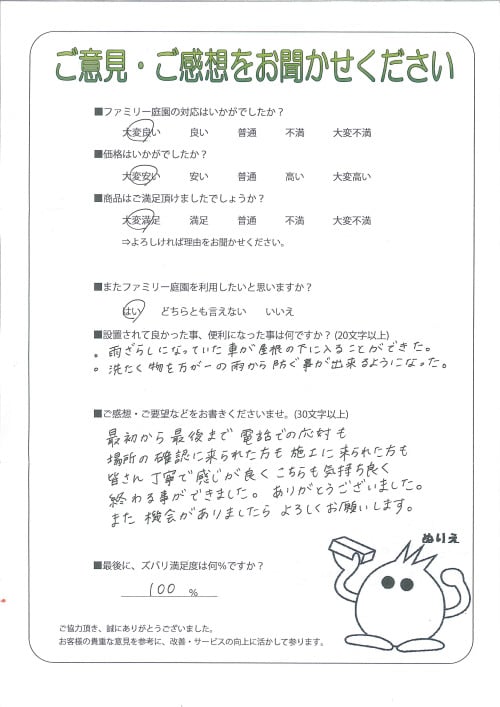 ご意見・ご感想をお聞かせください
■ファミリー庭園の対応はいかがでしたか？
大変良い 良い 普通 不満 大変不満
■価格はいかがでしたか？
大変安い 安い 普通 高い 大変高い
■商品はご満足頂けましたでしょうか？
大変満足 満足 普通 不満 大変不満
⇒よろしければ理由をお聞かせください。
■またファミリー庭園を利用したいと思いますか？
はい どちらとも言えない いいえ
■設置されて良かった事、便利になった事は何ですか？(20文字以上)
。雨ざらしになっていた車が屋根の下に入ることができた。
。洗たく物を万が一の雨から防ぐ事が出来るようになった。
■ご感想・ご要望などをお書きくださいませ。(30文字以上)
最初から最後まで電話での応対も
場所の確認に来られた方も施工に来られた方も
皆さん丁寧で感じが良くこちらも気持ち良く
終わる事ができました。ありがとうございました。
また機会がありましたらよろしくお願いします。
ぬりえ
■最後に、ズバリ満足度は何％ですか？
100 ％
ご協力頂き、誠にありがとうございました。
お客様の貴重な意見を参考に、改善・サービスの向上に活かして参ります。